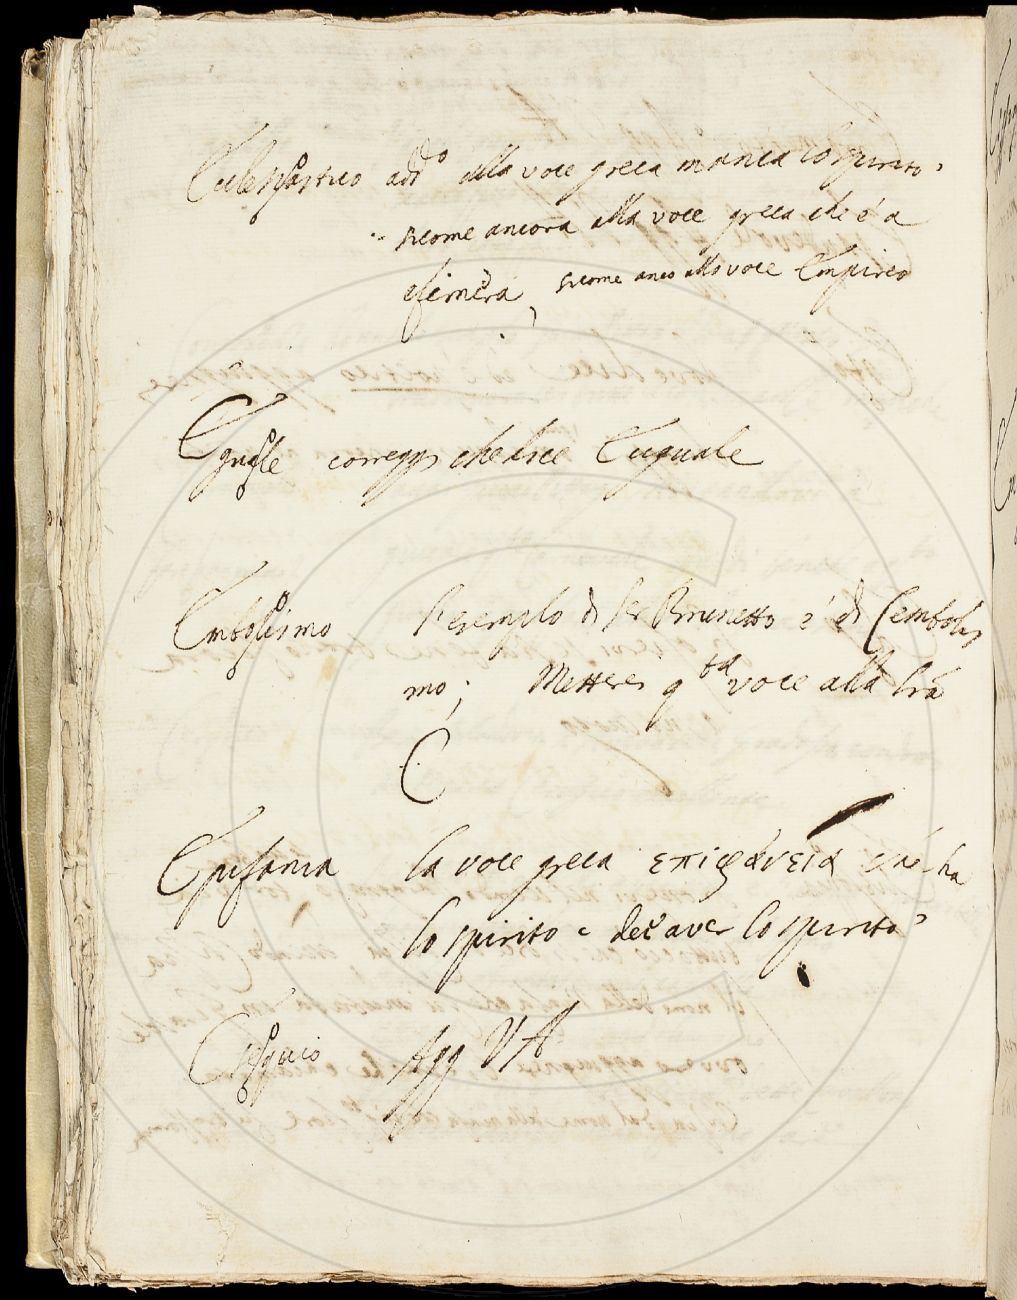 Eclesiastico add.o alla voce greca manca lo spirito,
sicome ancora alla voce greca che è a
efimera, sicome anco alla voce Empireo
Eguale corregg. che dice Euguale
Embolismo l'esempio di Ser Brunetto è di Cembolis
mo; Mettere q.ta voce alla lrã
C
Epifania la voce greca επιφάνεια che ha
lo spirito e dee aver lo spirito
Esequio Agg VA